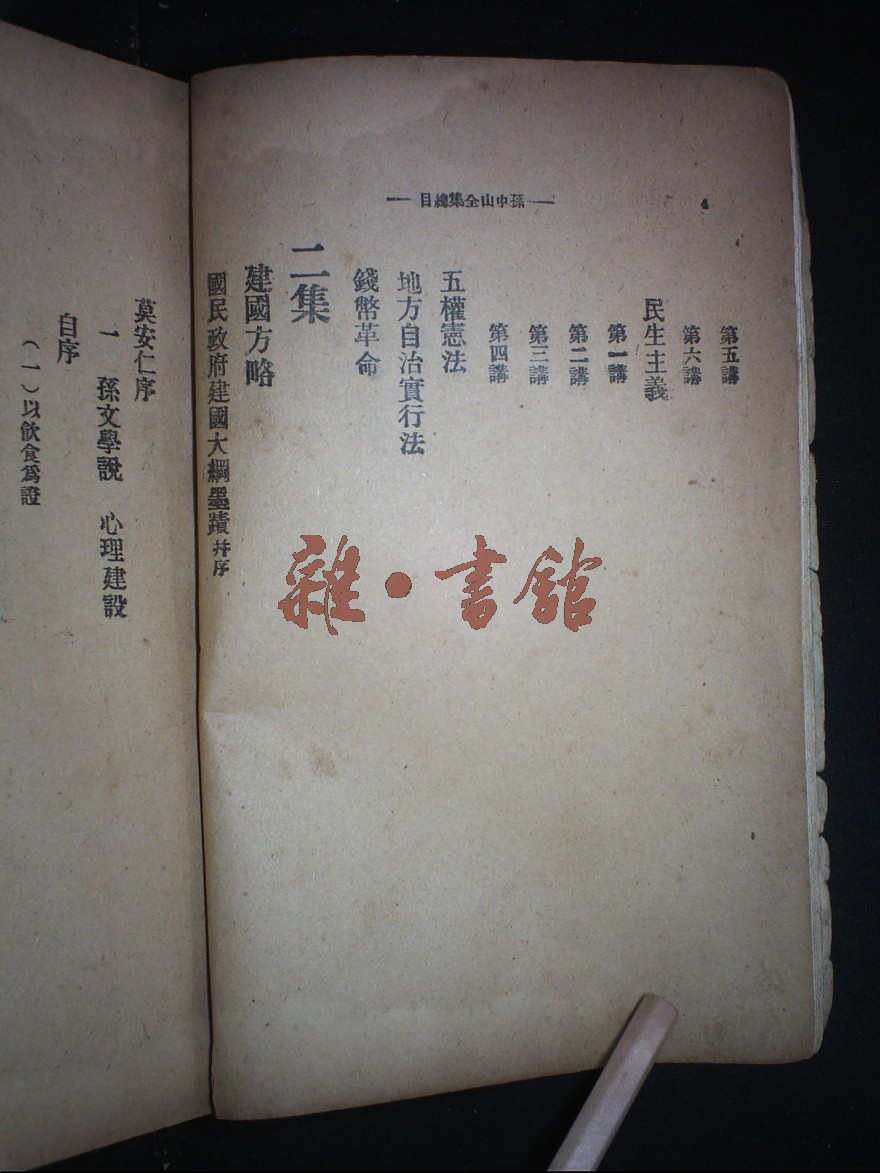 4
—孫中山全集總目—
第五講
第六講
民生主義
第一講
第二講
第三講
第四講
五權憲法
地方自治實行法
錢幣革命
二集
建國方略
國民政府建國大綱墨蹟 幷序
莫安仁序
一 孫文學說 心理建設
自序
(一)以飲食爲證
雜·書館